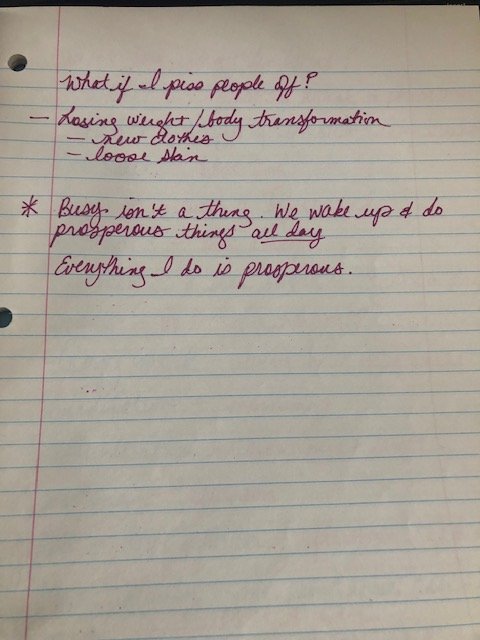 What if I piss people off?
- Losing weight/body transformation
- new clothes
- loose skin
* Busy isn't a thing. We wake up & do
prosperous things all day
Everything I do is prosperous.